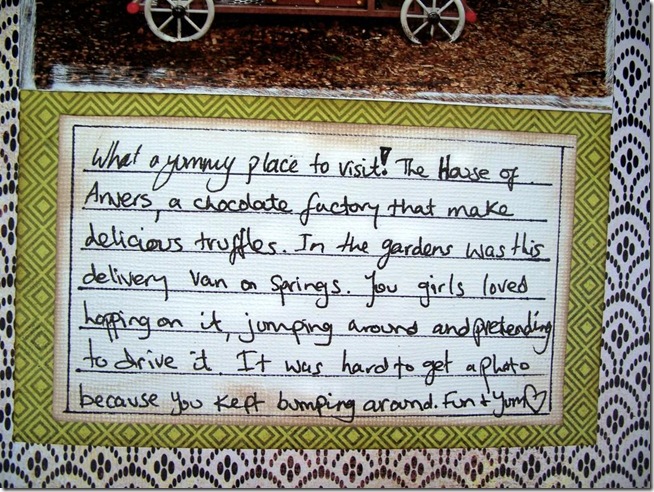 What a yummy place to visit! The House of
Anvers, a chocolate factory that make
delicious truffles. In the gardens was this
delivery van on springs. You girls loved
hopping on it, jumping around and pretending
to drive it. It was hard to get a photo
because you kept bumping around. Fun & Yum♡